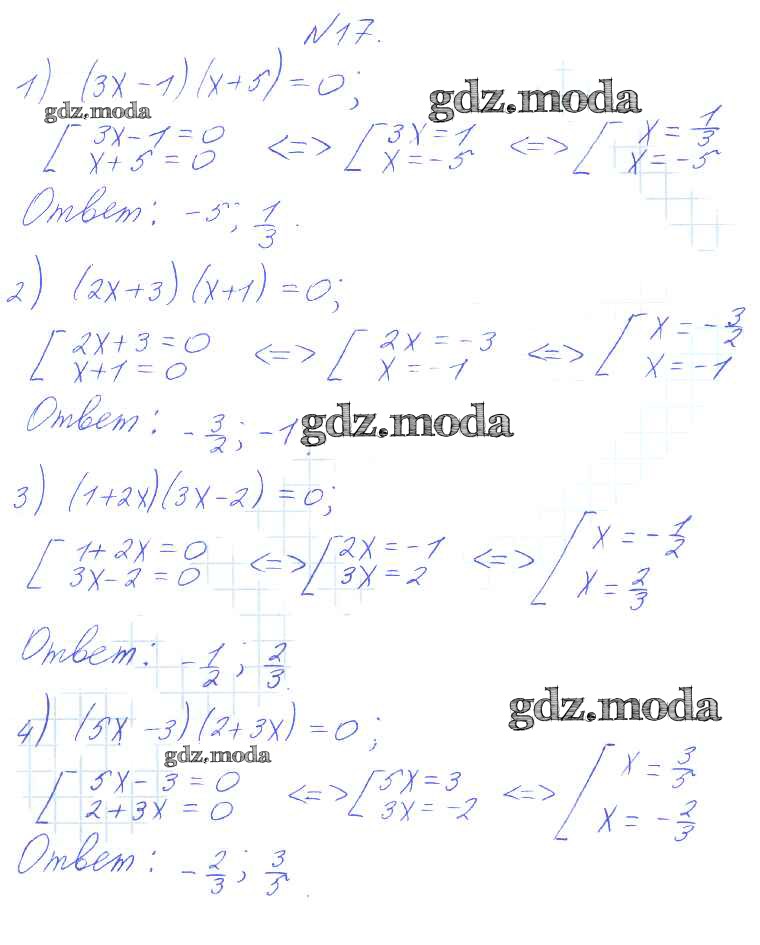 №17.
1) (3x-1)(x+5)=0;
gdz.moda
gdz.moda
[ 3x-1=0 <=> [ 3x=1 <=> [ x=1/3
x+5=0 x=-5 x=-5
Ответ: -5; 1/3.
2) (2x+3)(x+1)=0;
[ 2x+3=0 <=> [ 2x=-3 <=> [ x=-3/2
x+1=0 x=-1 x=-1
Ответ: -3/2; -1.
gdz.moda
3) (1+2x)(3x-2)=0;
[ 1+2x=0 <=> [ 2x=-1 <=> [ x=-1/2
3x-2=0 3x=2 x=2/3
Ответ: -1/2; 2/3.
gdz.moda
4) (5x-3)(2+3x)=0;
gdz.moda
[ 5x-3=0 <=> [ 5x=3 <=> [ x=3/5
2+3x=0 3x=-2 x=-2/3
Ответ: -2/3; 3/5.